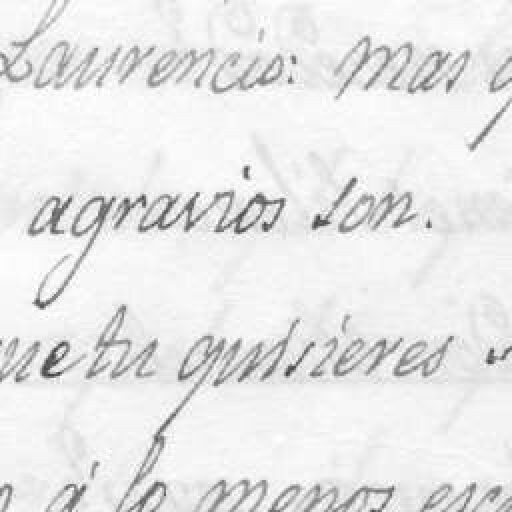 Laurencio: mas
agravios son.
tu quisieres
á lo menos